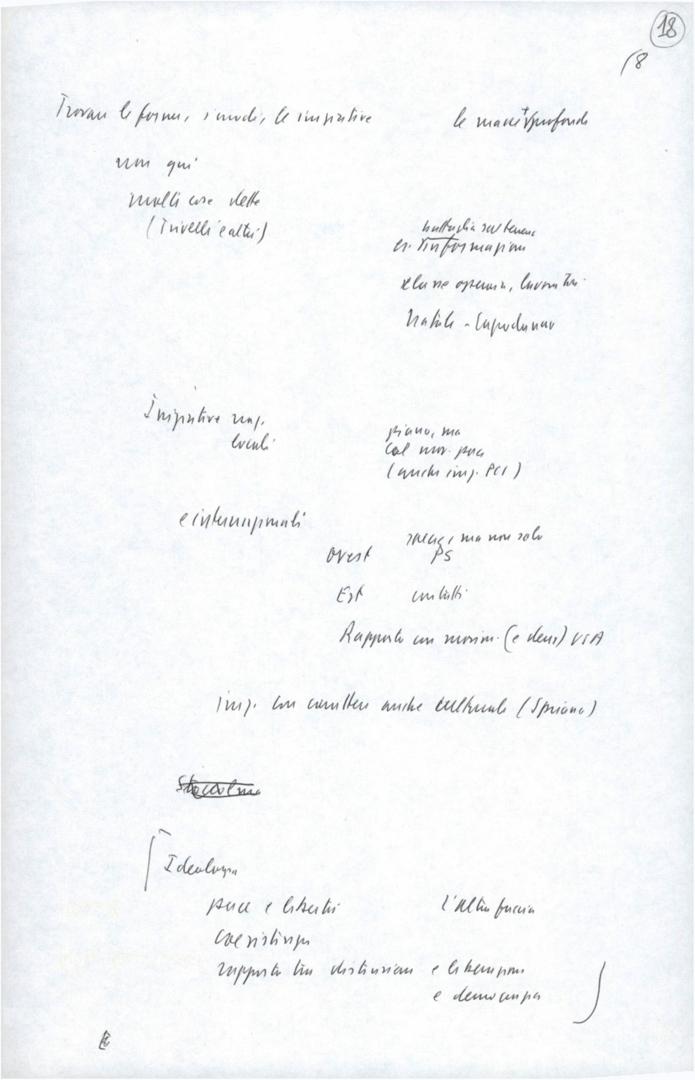 18
18
Trovare le forme, i modi, le iniziative le masse + profonde
non qui
molte cose dette
(Trivelli e altri)
battaglia
es. informazione
classe operaia, lavoratori
Natale - Capodanno
Iniziative naz.
locali
piano, ma
col mov. pace
(anche iniz. PCI)
e internazionali
ovest ma non solo
PS
Est contatti
Rapporto con movim. (e dem) USA
iniz. con carattere anche culturale (Spriano)
Ideologia
pace e libertà l'altra faccia
coesistenza
rapporto tra distensione e liberazione
e democrazia